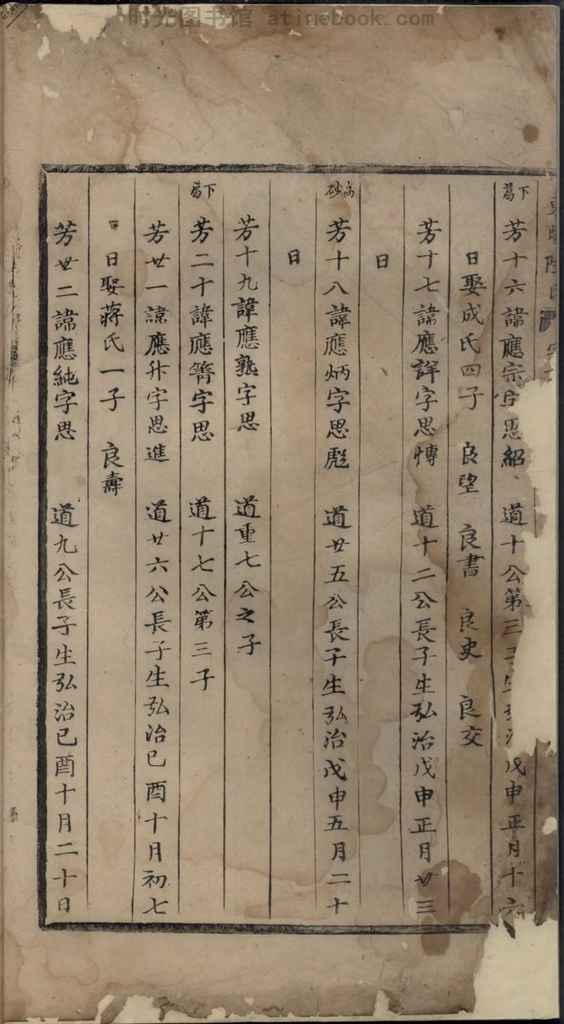 时光图书馆 atimebook.com
下
芳十六諱應宗字思紹 道十公第三子生弘治戊申正月十六
日娶成氏四子 良望 良書 良史 良交
芳十七諱應詳字思愽 道十二公長子生弘治戊申正月廿三
日
芳十八諱應炳字思彪 道廿五公長子生弘治戊申五月二十
日
芳十九諱應熟字思 道重七公之子
下
芳二十諱應簀字思 道十七公第三子
芳廿一諒應升字思進 道廿六公長子生弘治已酉十月初七
日娶蔣氏一子 良壽
芳廿二諱應純字思 道九公長子生弘治已酉十月二十日